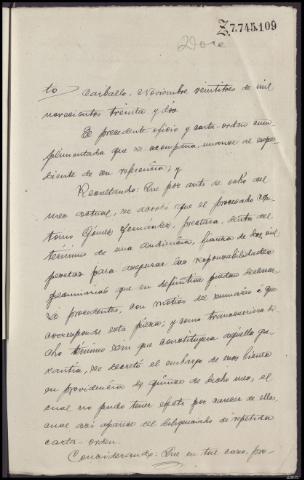 Z.7.745.109
Doce
to Carballo, Noviembre veintitres de mil
novecientos treinta y dos
El precedente oficio y carta-orden cum
plimentada que se acompaña, unanse al expe
diente de su referencia; y
Resultando: Que por auto de ocho del
mes actual, se acordó que el procesado
Gómez Fernandez, prestara, dentro del
término de una audiencia, fianza de
pesetas para asegurar las responsabilidades
pecuniarias que en definitiva puedan
procedentes, con motivo del sumario á que
corresponde esta pieza; y como transcurriera
dicho término sin que constituyera aquella ga
rantía, se decretó el embargo de sus bienes
en providencia de quince de dicho mes, el
cual no pudo tener efecto por carecer de ellos,
cual así aparece del diligenciado de repetida
carta-orden.
Considerando: Que en tal caso, pro-